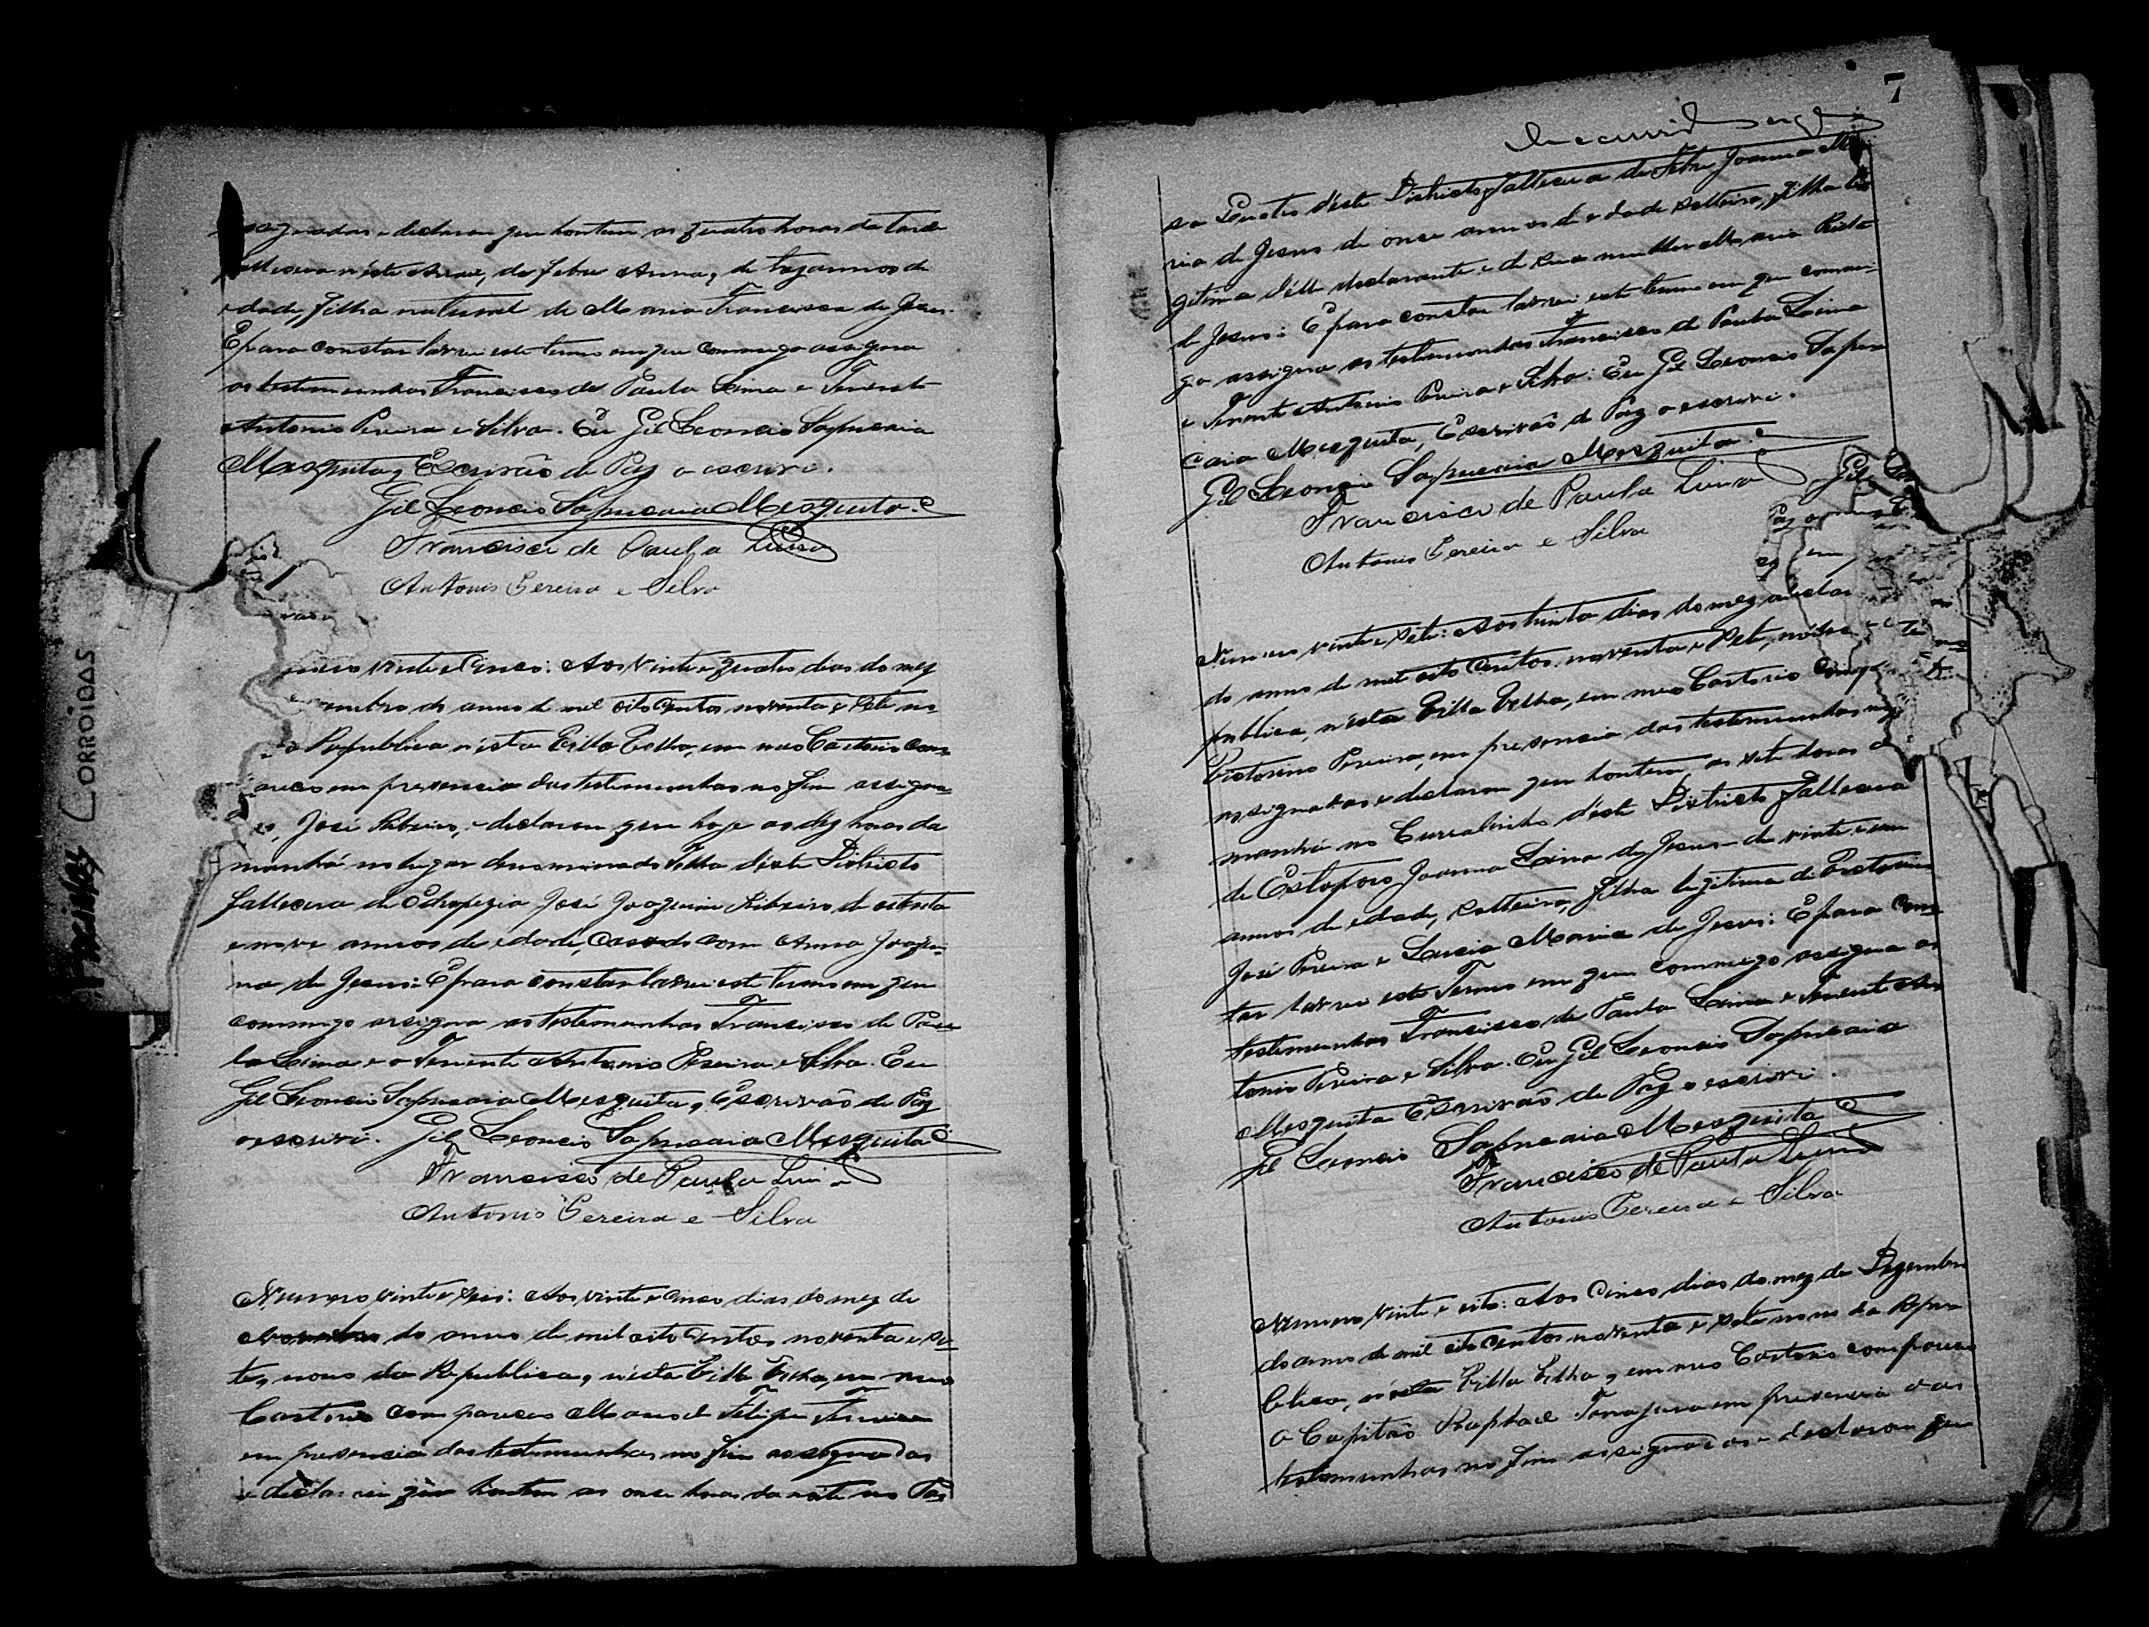 assignadas e declarou que hontem as quatro horas da tarde
fallecera n'este Arraial, de febre Anna, de tres annos de
edade, filha natural de Maria Francisca de Jesus.
E para constar lavrei este termo em que commigo assigna
as testemunhas Francisco de Paula Lima e Tenente
Antonio Pereira e Silva. Eu Gil Leoncio Sapucaia
Mesquita, Escrivão de Paz o escrivi.
Gil Leoncio Sapucaia Mesquita
Francisco de Paula Lima
Antonio Pereira e Silva
mero vinte e Cinco: Aos vinte e quatro dias do mez
embro do anno de mil oito Centos noventa e sete no
Republica n'esta Villa Velha, em meo Cartorio com
areceo em presencia das testemunhas no fim assigna
José Ribeiro, e declarou que hoje as dez horas da
manhã no lugar denominado Ilha d'este Districto
fallecera de Hdropezia José Joaquim Ribeiro de oitenta
e nove annos de edade, Casado com Anna Joaqui
na de Jesus: E para constar lavrei este termo em que
commigo assigna as testemunhas Francisco de Pau
la Lima e o Tenente Antonio Pereira e Silva. Eu
Gil Leoncio Sapucaia Mesquita, Escrivão de Paz
o escrivi. Gil Leoncio Sapucaia Mesquita
Francisco de Paula Lima
Antonio Pereira e Silva
Numero vinte e seis: Aos vinte e cinco dias do mez de
Novembro do anno de mil oito Centos noventa e se
te, nono da Republica, n'esta Villa Velha, em meo
Cartorio compareceo Manoel Felipe
em presencia das testemunhas no fim assignadas
e declarou que hontem as onse horas da noite no
PAGINAS CORROIDAS
7
d'este Districto, fallecera de febre Joanna Ma
ria de Jesus de onse annos de edade solteira, filha le
gitima d'elle declarante e de sua mulher Maria
de Jesus: E para constar lavrei este termo em que commi
go assigna as testemunhas Francisco de Paula Lima
e Tenente Antonio Pereira e Silva: Eu Gil Leoncio Sapu
caia Mesquita, Escrivão de Paz o escrivi.
Gil Leoncio Sapucaia Mesquita
Francisco de Paula Lima
Antonio Pereira e Silva
Numero vinte e sete: Aos trinta dias do mez
do anno de mil oito Centos noventa e sete, nono
publica, n'esta Villa Velha, em meo Cartorio
Victorino Pereira, em presencia das testemunhas
assignadas e declarou que hontem, as sete horas da
manhã no Curralinho d'este Districto fallecera
de Estopor Joanna Lina de Jesus de vinte e um
annos de edade, solteira, filha legitima de Victorino
José Pereira e Lucia Maria de Jesus: E para Cons
tar lavrei este Termo em que commigo assigna as
testemunhas Francisco de Paula Lima e Tenente An
tonio Pereira e Silva. Eu Gil Leoncio Sapucaia
Mesquita Escrivão de Paz o escrivi.
Gil Leoncio Sapucaia Mesquita
Francisco de Paula Lima
Antonio Pereira e Silva
Numero vinte e oito: Aos Cinco dias do mez de Dezembro
do anno de mil oito centos noventa e sete nono da Repu
blica, n'esta Villa Velha, em meo Cartorio compareceo
o Capitão Raphael Tanajura em presencia das
testemunhas no fim assignadas e declarou que